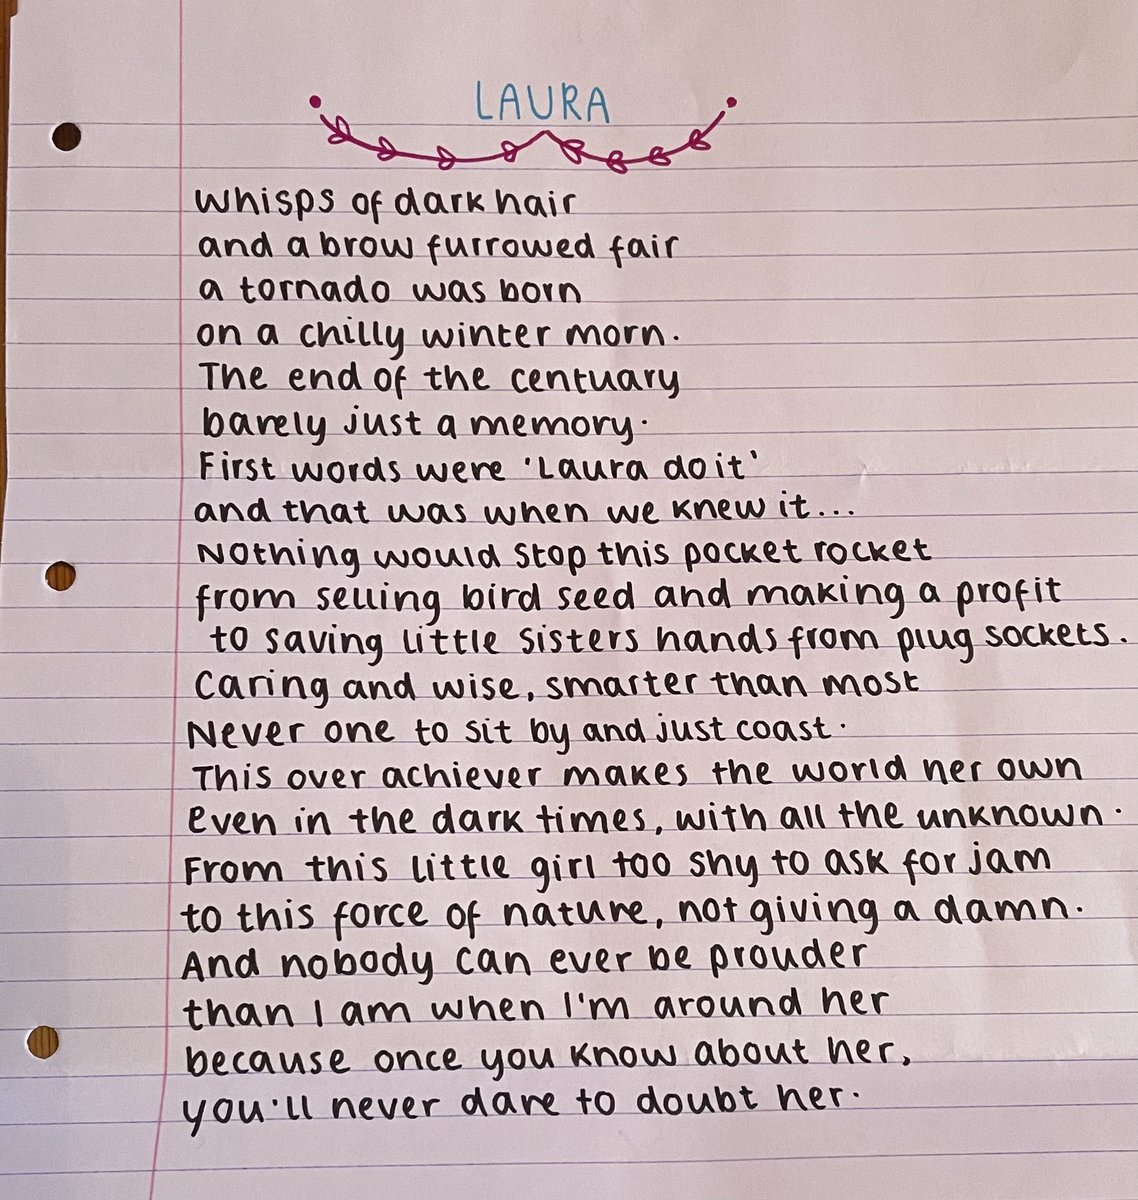 LAURA
Whisps of dark hair
and a brow furrowed fair
a tornado was born
on a chilly winter morn.
The end of the centuary
barely just a memory.
First words were 'Laura do it'
and that was when we knew it...
Nothing would stop this pocket rocket
from selling bird seed and making a profit
to saving little sisters hands from plug sockets.
Caring and wise, smarter than most
Never one to sit by and just coast.
This over achiever makes the world her own
Even in the dark times, with all the unknown.
From this little girl too shy to ask for jam
to this force of nature, not giving a damn.
And nobody can ever be prouder
than I am when I'm around her
because once you know about her,
you'll never dare to doubt her.